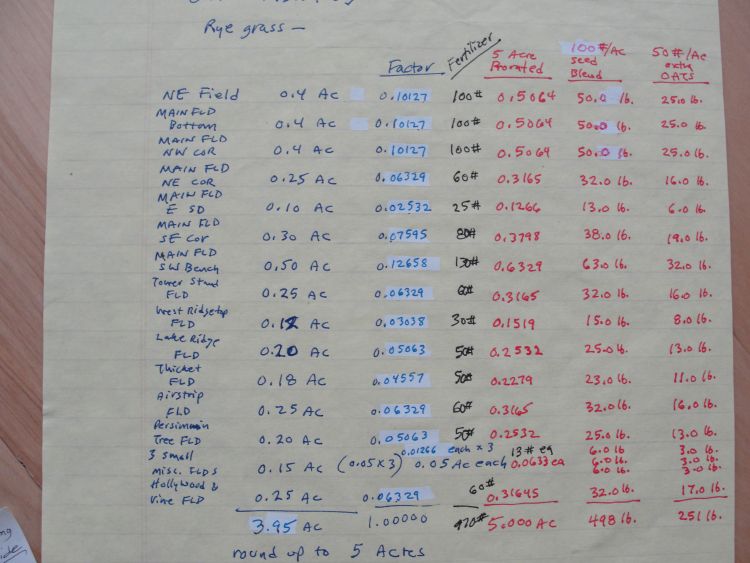 Rye grass —
Factor Fertilizer 5 Acre Prorated 100#/Ac seed Blend 50#/Ac extra OATS
NE Field 0.4 Ac 0.10127 100# 0.5064 50.0 lb. 25.0 lb.
MAIN FLD
Bottom 0.4 Ac 0.10127 100# 0.5064 50.0 lb. 25.0 lb.
MAIN FLD
NW COR 0.4 Ac 0.10127 100# 0.5064 50.0 lb. 25.0 lb.
MAIN FLD
NE COR 0.25 AC 0.06329 60# 0.3165 32.0 lb. 16.0 lb.
MAIN FLD
E SD 0.10 AC 0.02532 25# 0.1266 13.0 lb. 6.0 lb.
MAIN FLD
SE Cor 0.30 AC 0.07595 80# 0.3798 38.0 lb. 19.0 lb.
MAIN FLD
SW Bench 0.50 AC 0.12658 130# 0.6329 63.0 lb. 32.0 lb.
Tower Stand
FLD 0.25 AC 0.06329 60# 0.3165 32.0 lb. 16.0 lb.
West Ridgetop
FLD 0.12 AC 0.03038 30# 0.1519 15.0 lb. 8.0 lb.
Lake Ridge
FLD 0.20 AC 0.05063 50# 0.2532 25.0 lb. 13.0 lb.
Thicket
FLD 0.18 AC 0.04557 50# 0.2279 23.0 lb. 11.0 lb.
Airstrip
FLD 0.25 AC 0.06329 60# 0.3165 32.0 lb. 16.0 lb.
Persimmon
Tree FLD 0.20 AC 0.05063 50# 0.2532 25.0 lb. 13.0 lb.
3 small 0.01266 each x 3 13# eq 6.0 lb. 3.0 lb.
misc. FLDS 0.15 AC (0.05 x 3) 0.05 Ac each 0.0633 ea 6.0 lb. 3.0 lb.
6.0 lb. 3.0 lb.
Hollywood &
Vine FLD 0.25 AC 0.06329 60# 0.31645 32.0 lb. 17.0 lb.
3.95 AC 1.00000 970# 5.000 AC 498 lb. 251 lb.
round up to 5 Acres
ng
ide